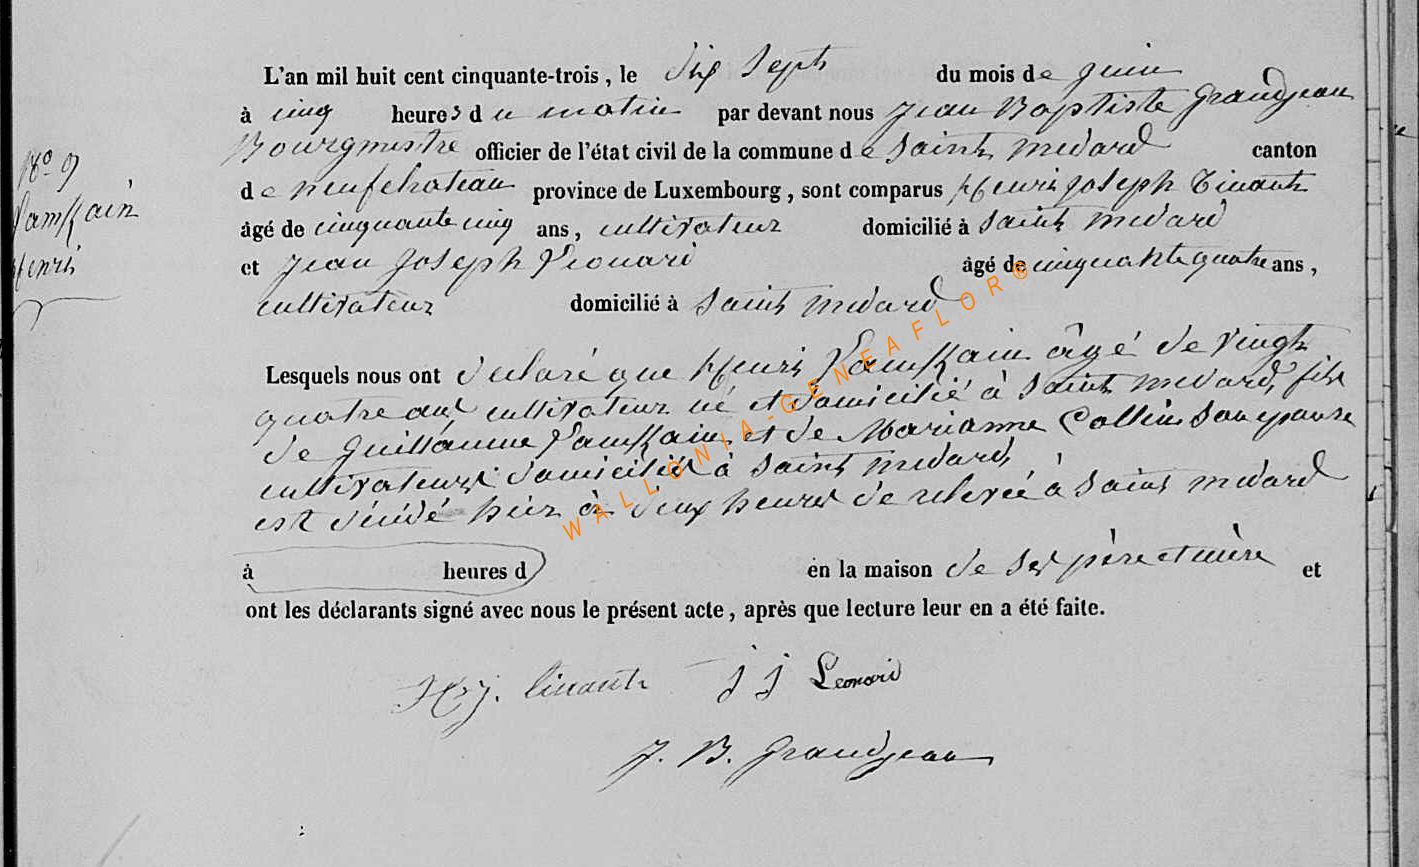 L'an mil huit cent cinquante-trois, le dix sept du mois de juin
à cinq heures du matin par devant nous Jean Baptiste Grandjean
Bourgmestre officier de l'état civil de la commune de Saint médard canton
de neufchateau province de Luxembourg, sont comparus Henri Joseph Tinant
âgé de cinquante cinq ans, cultivateur domicilié à Saint médard
et Jean Joseph Léonard âgé de cinquante quatre ans,
cultivateur domicilié à Saint médard
Lesquels nous ont déclaré que Henri âgé de vingt
quatre ans cultivateur né et domicilié à Saint médard, fils
de Guillaume et de Marianne Collin son épouse
cultivateurs domiciliés à Saint médard,
est décédé hier à deux heures de relevée à Saint médard
à heures d en la maison de ses père et mère et
ont les déclarants signé avec nous le présent acte, après que lecture leur en a été faite.
H. J. Tinant J J Leonard
J. B. Grandjean
N° 9
Henri
WALLONIA-GENEAFLOR®